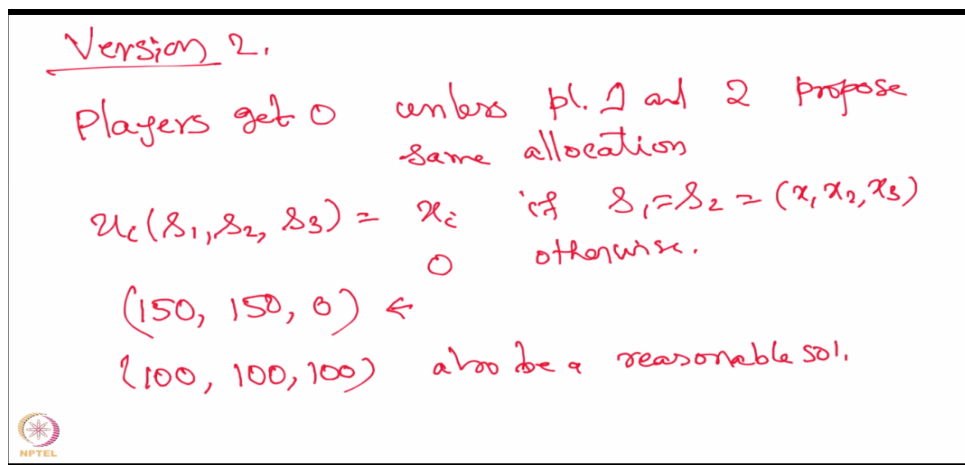 Version 2.
Players get 0 unless pl. 1 and 2 propose
same allocation
u_i(s_1, s_2, s_3) = x_i if s_1 = s_2 = (x_1, x_2, x_3)
0 otherwise.
(150, 150, 0) ←
(100, 100, 100) also be a reasonable sol.
NPTEL